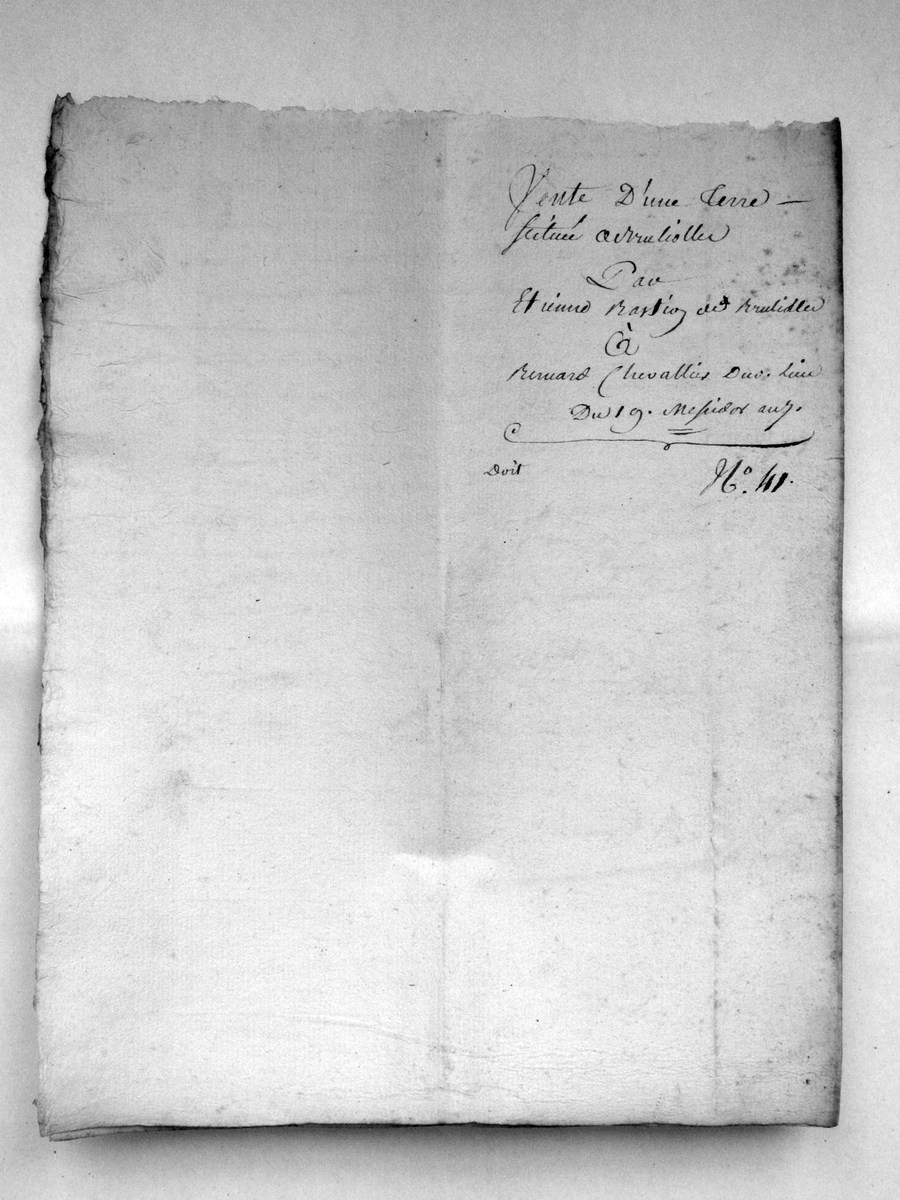 Vente D'une Terre —
scituée a Bruliolles
Par
Etienne Bastion de Bruliolles
à
Bernard Chevallier Du d. Lieu
Du 19. Messidor an 7.
Doit
N.° 41.